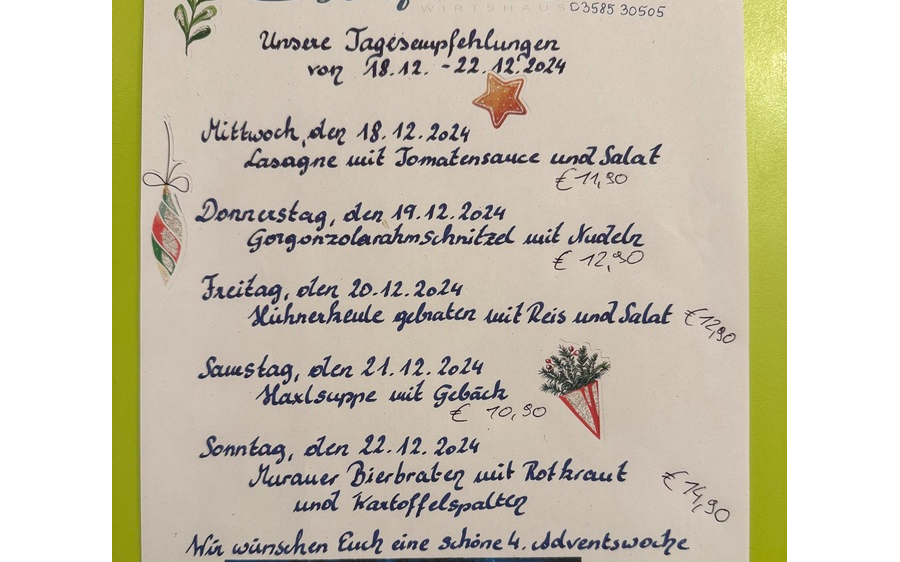 WIRTSHAUS 03585 30505
Unsere Tagesempfehlungen
von 18.12. - 22.12.2024
Mittwoch, den 18.12.2024
Lasagne mit Tomatensauce und Salat
€ 11,90
Donnerstag, den 19.12.2024
Gorgonzolarahmschnitzel mit Nudeln
€ 12,90
Freitag, den 20.12.2024
Hühnerkeule gebraten mit Reis und Salat € 12,90
Samstag, den 21.12.2024
Haxlsuppe mit Gebäck
€ 10,90
Sonntag, den 22.12.2024
Murauer Bierbraten mit Rotkraut
und Kartoffelspalten € 14,90
Wir wünschen Euch eine schöne 4. Adventswoche